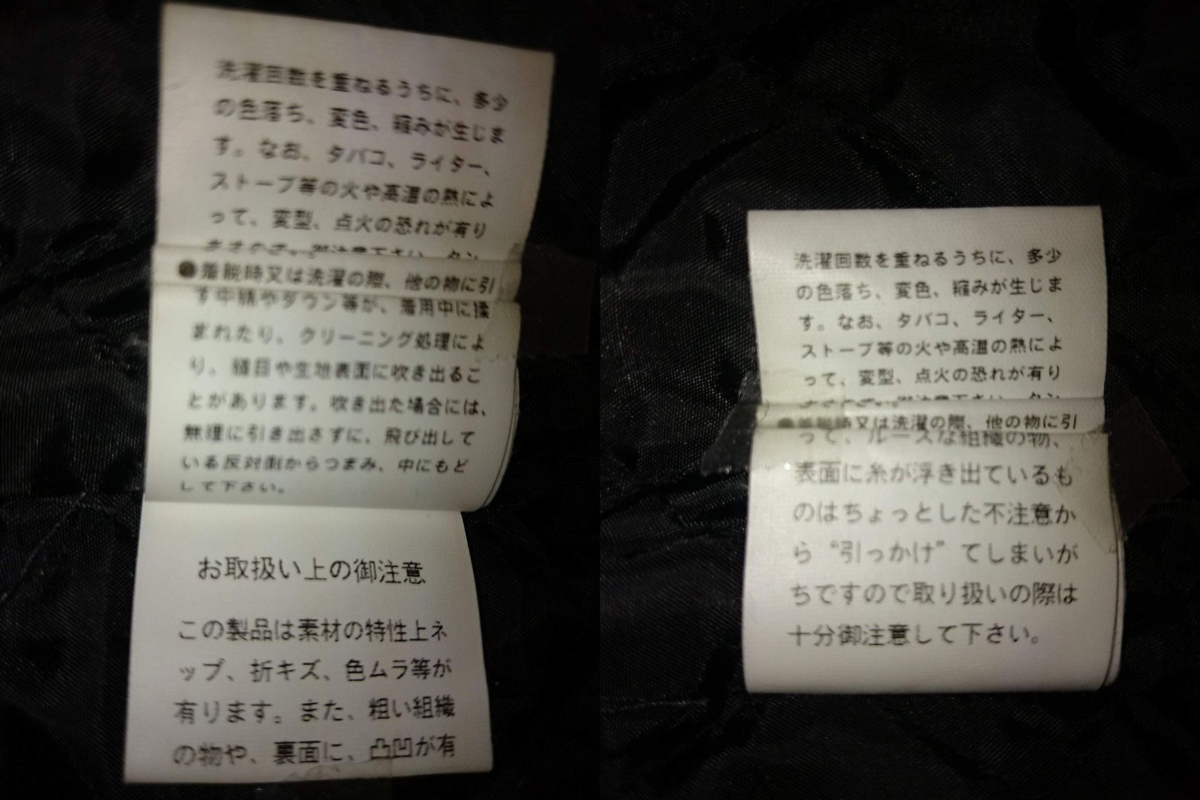 洗濯回数を重ねるうちに、多少
の色落ち、変色、縮みが生じま
す。なお、タバコ、ライター、
ストーブ等の火や高温の熱によ
って、変型、点火の恐れが有り
ますので、御注意下さい。タン
●着脱時又は洗濯の際、他の物に引
す中綿やダウン等が、着用中に揉
まれたり、クリーニング処理によ
り、縫目や生地表面に吹き出るこ
とがあります。吹き出た場合には、
無理に引き出さずに、飛び出して
いる反対側からつまみ、中にもど
して下さい。
お取扱い上の御注意
この製品は素材の特性上ネ
ップ、折キズ、色ムラ等が
有ります。また、粗い組織
の物や、裏面に、凸凹が有
洗濯回数を重ねるうちに、多少
の色落ち、変色、縮みが生じま
す。なお、タバコ、ライター、
ストーブ等の火や高温の熱によ
って、変型、点火の恐れが有り
●着脱時又は洗濯の際、他の物に引
って、ルーズな組織の物、
表面に糸が浮き出ているも
のはちょっとした不注意か
ら“引っかけ”てしまいが
ちですので取り扱いの際は
十分御注意して下さい。